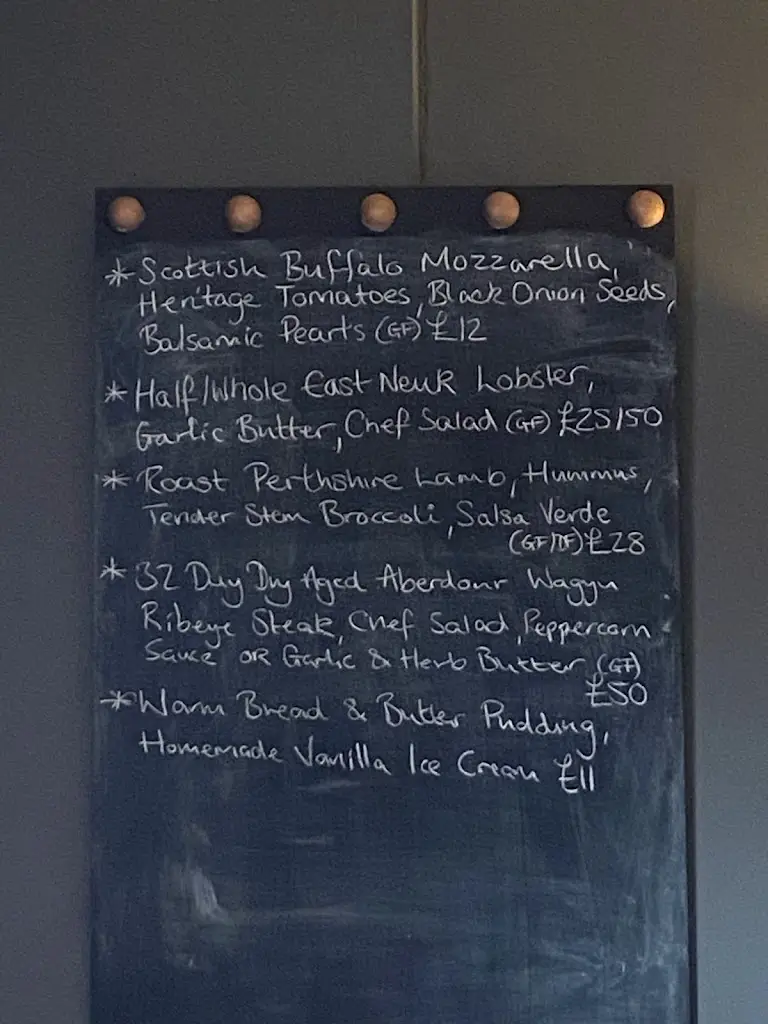 * Scottish Buffalo Mozzarella,
Heritage Tomatoes, Black Onion Seeds,
Balsamic Pearls (GF) £12
* Half/Whole East Neuk Lobster,
Garlic Butter, Chef Salad (GF) £25/50
* Roast Perthshire Lamb, Hummus,
Tender Stem Broccoli, Salsa Verde
(GF/DF) £28
* 32 Day Dry Aged Aberdour Wagyu
Ribeye Steak, Chef Salad, Peppercorn
Sauce OR Garlic & Herb Butter (GF)
£50
* Warm Bread & Butter Pudding,
Homemade Vanilla Ice Cream £11